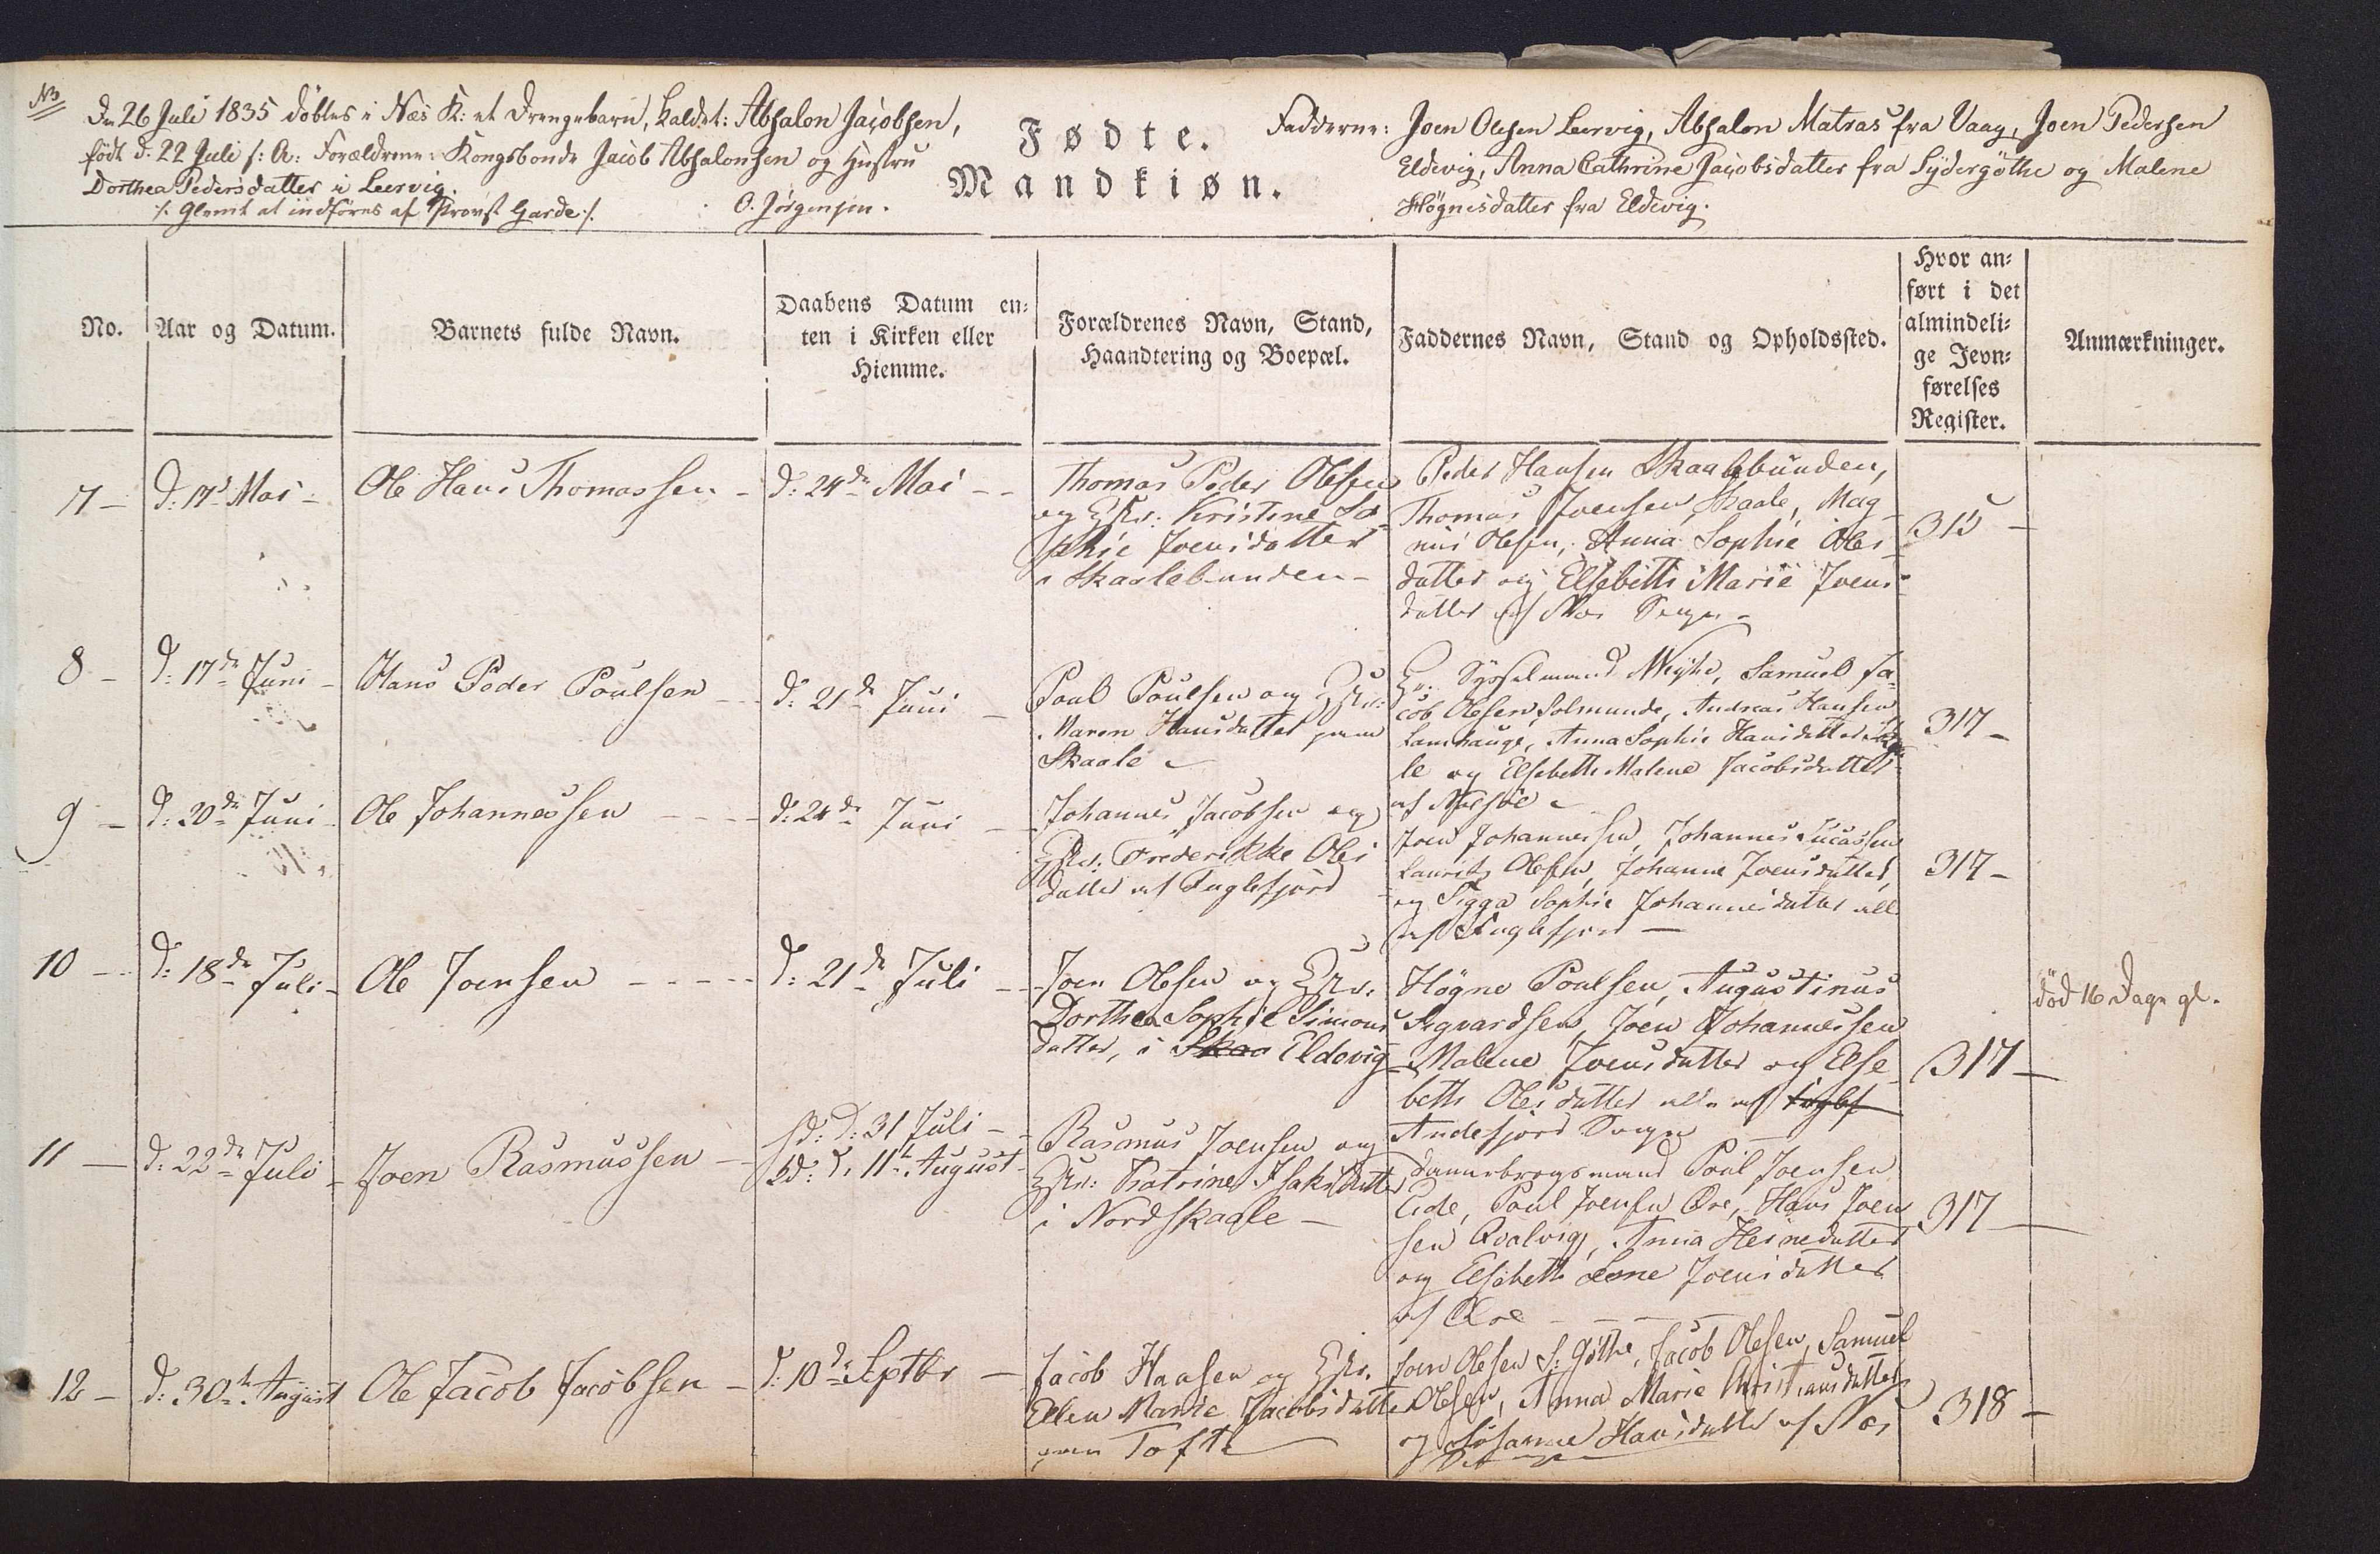 NB
Den 26 Juli 1835 döbtes i Næs K: et Drengebarn, kaldet: Absalon Jacobsen,
født d. 22 Juli s: A: Forældrene: Kongsbonde Jacob Absalonsen og Hustru
Dorthea Pedersdatter i Leervig.
/: Glemt at indföres af Provst Garde :/.
O. Jörgensen.
Fødte.
Mandkiøn.
Fadderne: Joen Olesen Leervig, Absalon Matras fra Vaag, Joen Pedersen
Eldevig, Anna Cathrine Jacobsdatter fra Sydergöthe og Malene
Högnesdatter fra Eldevig.
No.
Aar og Datum.
Barnets fulde Navn.
Daabens Datum en-
ten i Kirken eller
Hiemme.
Forældrenes Navn, Stand,
Haandtering og Boepæl.
Faddernes Navn, Stand og Opholdssted.
Hvor an-
ført i det
almindeli-
ge Jevn-
førelses
Register.
Anmærkninger.
7 -
d: 17 Mai -
Ole Hans Thomassen -
d: 24de Mai - -
Thomas Peder Olesen
og Hstr: Kristine So
phie Joensdatter
i Skaalebunden -
Peder Hansen Skaalebunden,
Thomas Joensen Skaale, Mag-
nus Olesen, Anna Sophie Oles-
datter og Elsebeth Marie Joens-
datter af Næs Sogn -
315 -
8 -
d: 17de Juni -
Hans Peder Poulsen - -
d: 21de Juni -
Poul Poulsen og Hstr:
Maren Hansdatter paa
Skaale -
Hr: Sysselmand Weyhe, Samuel Ja-
cob Olesen Solmunde, Andreas Hansen
Lamhauge, Anna Sophie Hansdatter
le og Elsebeth Malene Jacobsdatter
af
317 -
9 -
d: 20de Juni
Ole Johannessen - - - -
d: 24de Juni -
Johannes Jacobsen og
Hstr: Frederikke Oles
datter af Fuglefjord
Joen Johannessen, Johannes Lucassen
Laurits Olesen, Johanne Joensdatter,
og Sigga Sophie Johannesdatter alle
af Fuglefjord -
317 -
10 - -
d: 18de Juli -
Ole Joensen - - - - -
d: 21de Juli - -
Joen Olesen og Hstr:
Dorthea Sophie Simons
datter, i Skaa Eldevig
Högne Poulsen, Augustinus
Sigvardsen, Joen Johannessen
Malene Joensdatter og Else-
beth Olesdatter alle af Fuglef
Andefjord Sogn -
317 -
död 16 Dage gl.
11 -
d: 22de Juli -
Joen Rasmussen -
hd: d: 31 Juli - -
kd: d. 11te August -
Rasmus Joensen og
Hstr: Katrine Isaksdatter
i Nordskaale -
Dannebrogsmand Poul Joensen
Eide, Poul Joensen Öre, Hans Joen
sen Qvalvig, Anna Heinedatter
og Elsebeth Lene Joensdatter
af Öre - - - -
317 -
12 -
d: 30te August
Ole Jacob Jacobsen -
d: 10de Septbr -
Jacob Hansen og Hstr.
Ellen Marie Jacobsdatter
paa Tofte
Joen Olesen S: Göthe, Jacob Olesen, Samuel
Olesen, Anna Marie Christiansdatter
og Susanne Hansdatter af Næs
318 -